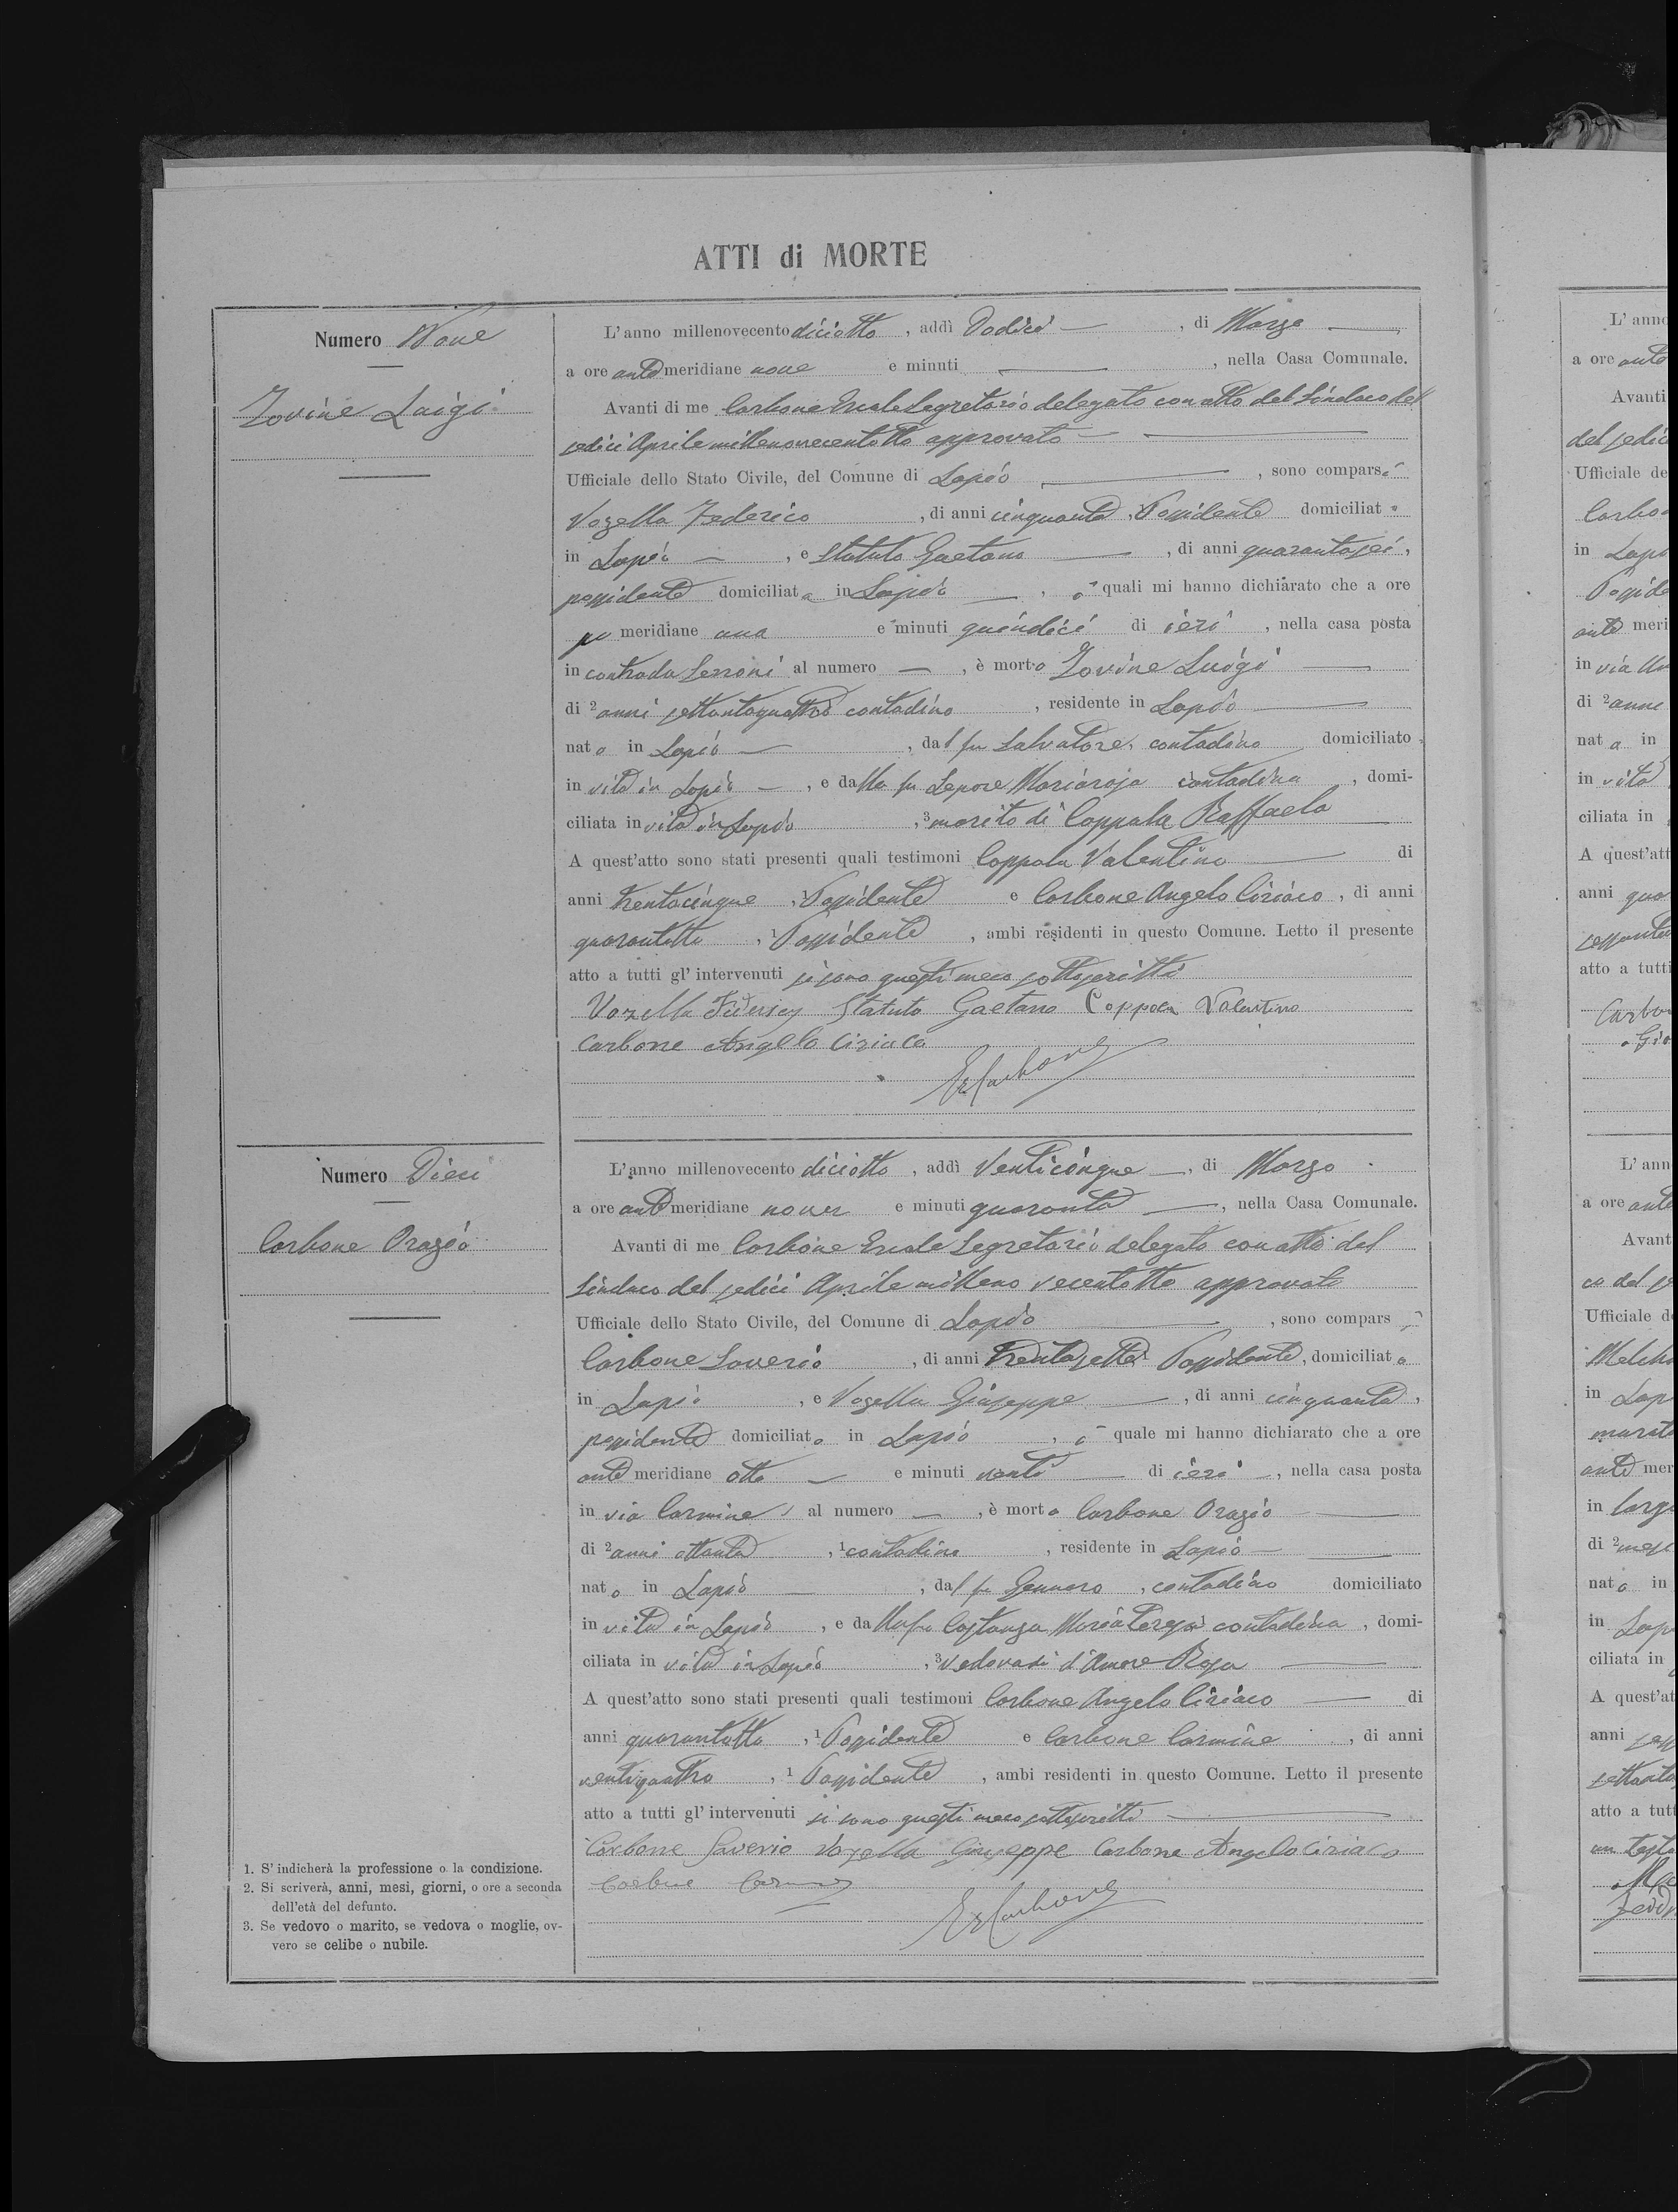 ATTI di MORTE
Numero Nove
Iovine Luigi
L'anno millenovecento diciotto, addì Dodici, di Marzo
a ore antemeridiane nove e minuti, nella Casa Comunale.
Avanti di me Carbone Ercole Segretario delegato con atto del Sindaco del
sedici Aprile millenovecentotto approvato
Ufficiale dello Stato Civile, del Comune di Lapio, sono comparsi
Vozella Federico, di anni cinquanta, Possidente domiciliato
in Lapio, e Statuto Gaetano, di anni quarantasei,
possidente domiciliato in Lapio, i quali mi hanno dichiarato che a ore
po meridiane una e minuti quindici di ieri, nella casa posta
in contrada al numero, è morto Iovine Luigi
di ² anni settantaquattro contadino, residente in Lapio
nato in Lapio, dal fu Salvatore, contadino domiciliato
in vita in Lapio, e dalla fu Lepore Mariarosa contadina, domi-
ciliata in vita in Lapio, ³ marito di Coppola Raffaela
A quest'atto sono stati presenti quali testimoni Coppola Valentino di
anni trentacinque, ¹ Possidente e Carbone Angelo Ciriaco, di anni
quarantotto, ¹ Possidente, ambi residenti in questo Comune. Letto il presente
atto a tutti gl'intervenuti si sono questi meco sottoscritti
Vozella Federico Statuto Gaetano Coppola Valentino
Carbone Angelo Ciriaco
ErCarbone
Numero Dieci
Carbone Orazio
L'anno millenovecento diciotto, addì Venticinque, di Marzo
a ore antemeridiane nove e minuti quaranta, nella Casa Comunale.
Avanti di me Carbone Ercole Segretario delegato con atto del
Sindaco del sedici Aprile millenovecentotto approvato
Ufficiale dello Stato Civile, del Comune di Lapio, sono comparsi
Carbone Saverio, di anni trentasette ¹ Possidente, domiciliato
in Lapio, e Vozella Giuseppe, di anni cinquanta,
possidente domiciliato in Lapio, i quale mi hanno dichiarato che a ore
ante meridiane otto e minuti venti di ieri, nella casa posta
in via Carmine al numero, è morto Carbone Orazio
di ² anni ottanta, ¹ contadino, residente in Lapio
nato in Lapio, dal fu Gennaro, contadino domiciliato
in vita in Lapio, e dalla fu Costanza Maria Teresa contadina, domi-
ciliata in vita in Lapio, ³ Vedova di d'Amore Rosa
A quest'atto sono stati presenti quali testimoni Carbone Angelo Ciriaco di
anni quarantotto, ¹ Possidente e Carbone Carmine, di anni
ventiquattro, ¹ Possidente, ambi residenti in questo Comune. Letto il presente
atto a tutti gl'intervenuti si sono questi meco sottoscritti
Carbone Saverio Vozella Giuseppe Carbone Angelo Ciriaco
Carbone Carmine
ErCarbone
1. S'indicherà la professione o la condizione.
2. Si scriverà, anni, mesi, giorni, o ore a seconda
dell'età del defunto.
3. Se vedovo o marito, se vedova o moglie, ov-
vero se celibe o nubile.